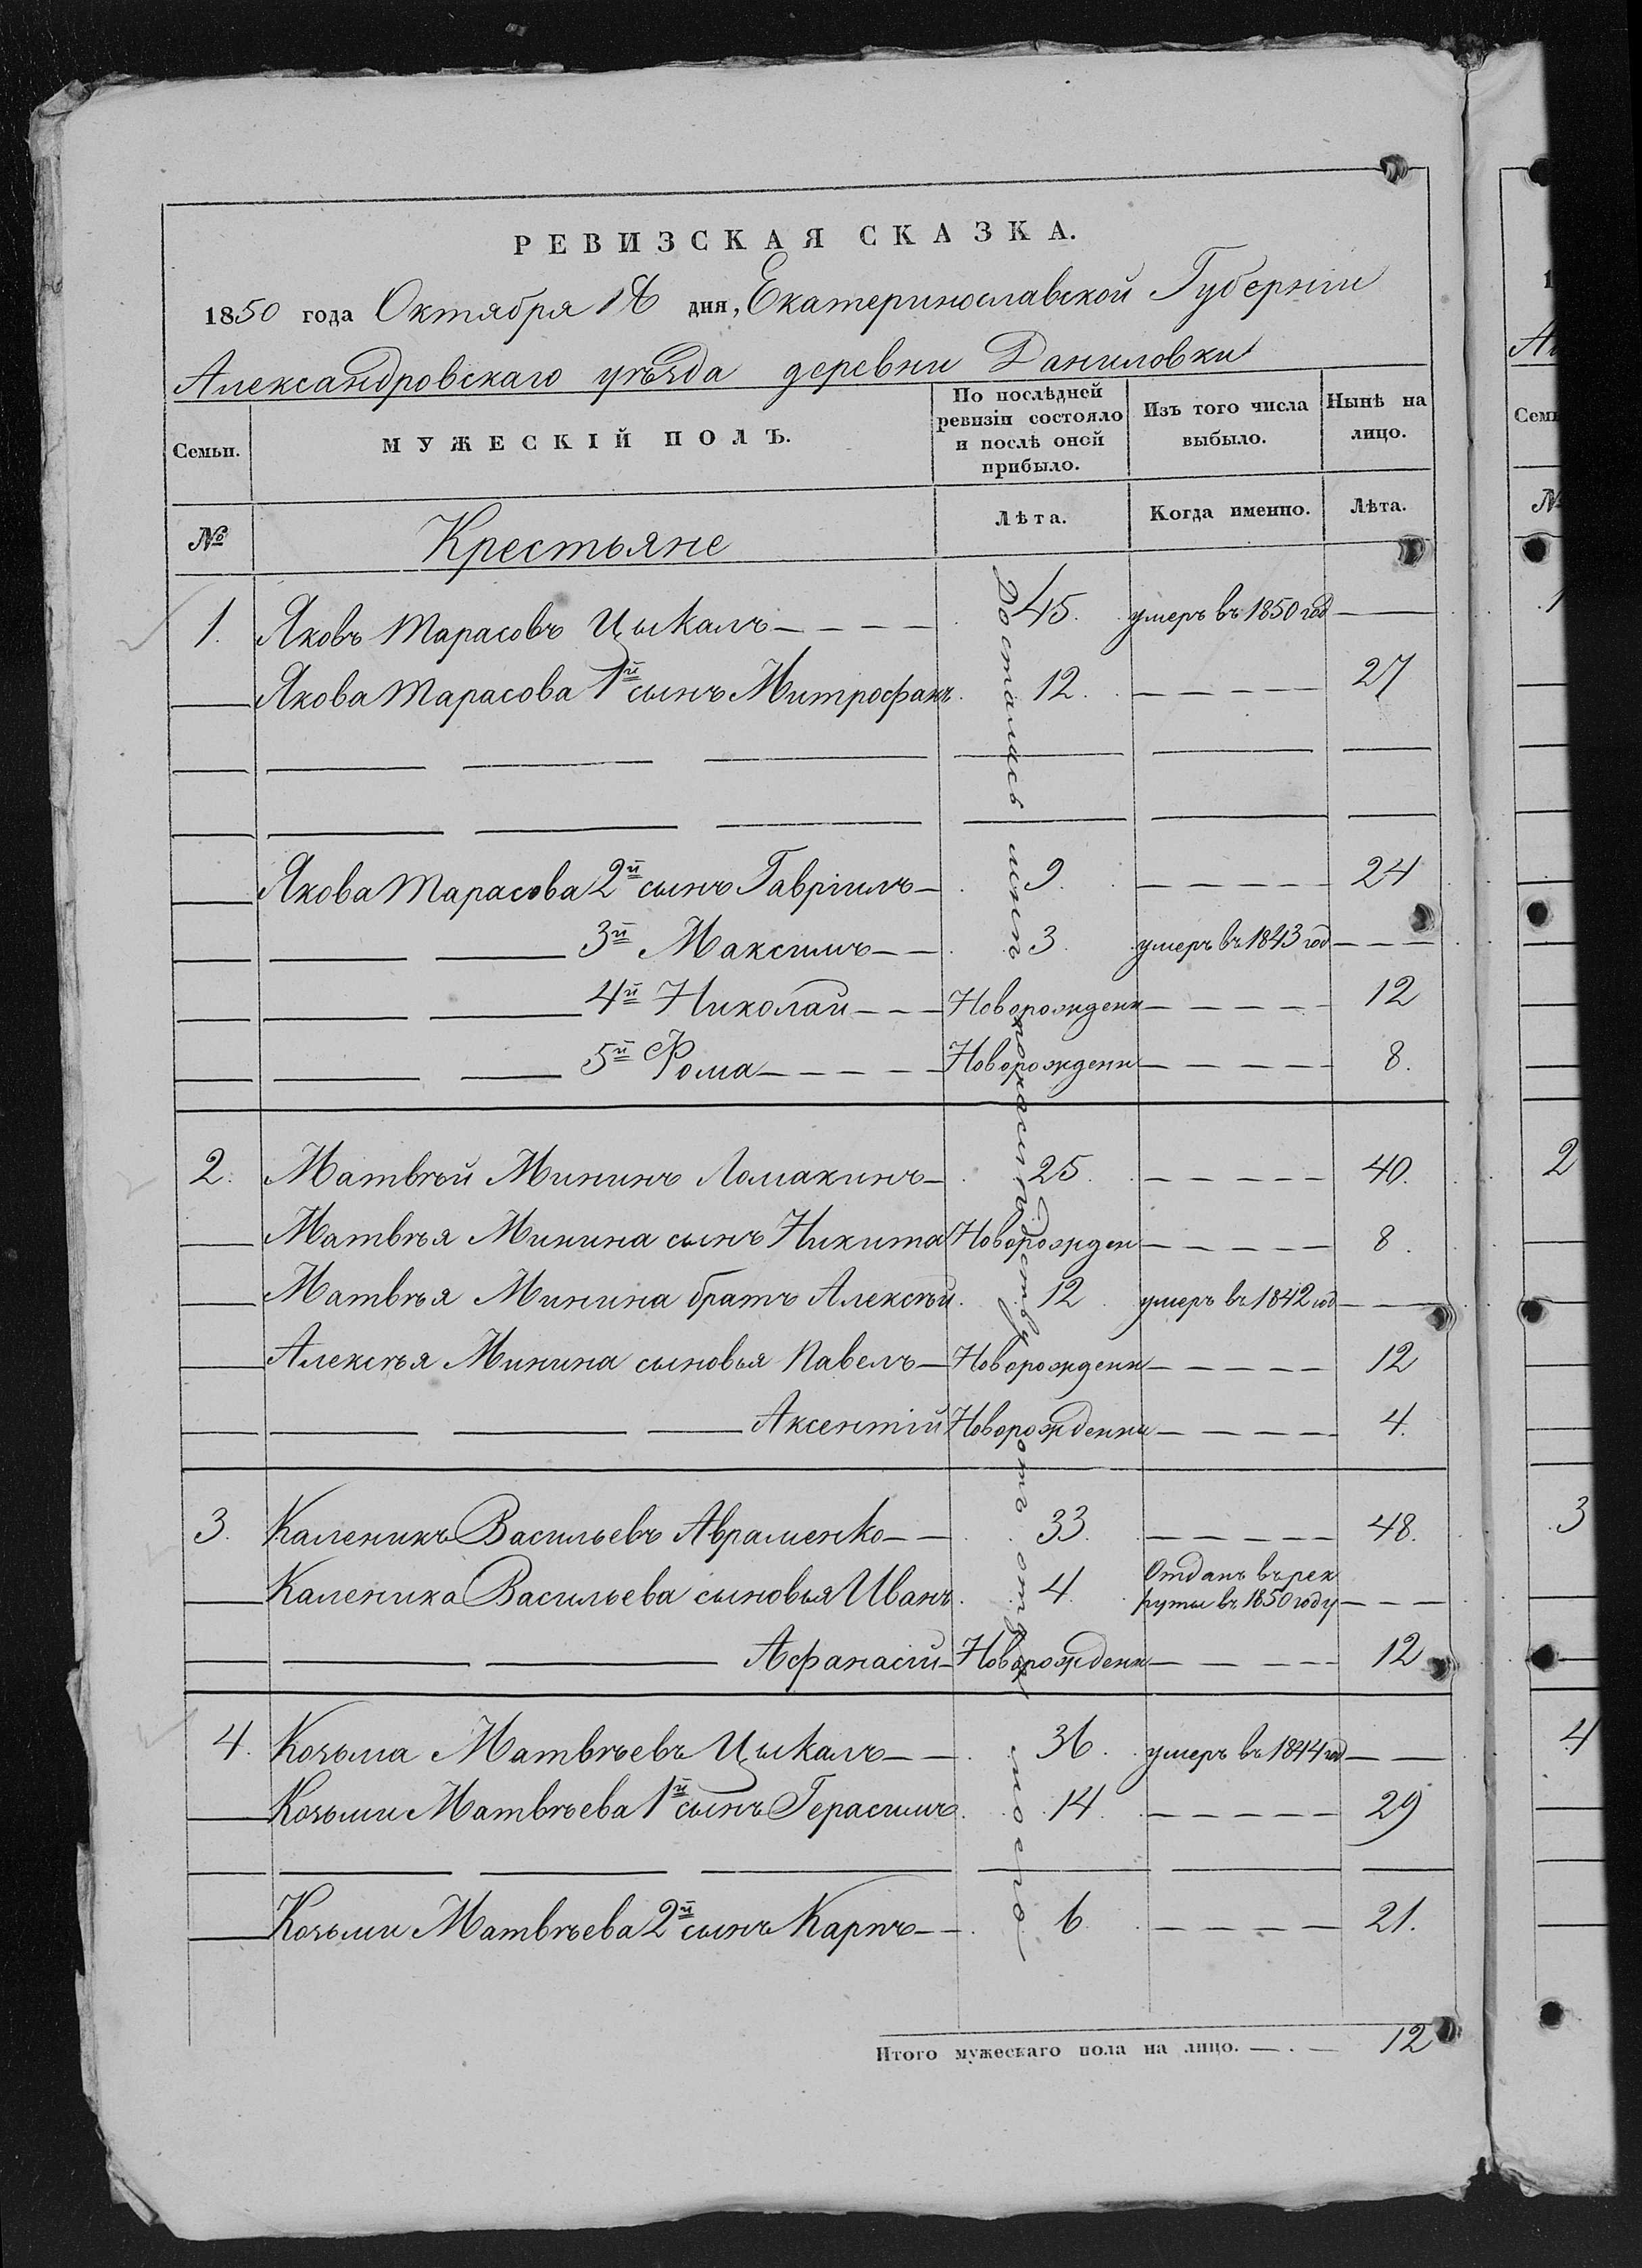 РЕВИЗСКАЯ СКАЗКА.
1850 года Октября 18 дня, Екатеринославской Губернии
Александровскаго уѣзда деревни Даниловки
Семьи. МУЖЕСКІЙ ПОЛЪ. По послѣдней ревизіи состояло и послѣ оной прибыло. Изъ того числа выбыло. Нынѣ на лицо.
№ Крестьяне Лѣта. Когда именно. Лѣта.
1. Яковъ Тарасовъ Цыкалъ 45. умеръ въ 1850 год
Якова Тарасова 1й сынъ Митрофанъ. 12. 27
Якова Тарасова 2й сынъ Гавріилъ 9. 24
3й Максимъ 3. умеръ въ 1843 год
4й Николай Новорожденн 12
5й Фома Новорожденн 8.
2. Матвѣй Мининъ Ломакинъ 25. 40.
Матвѣя Минина сынъ Никита Новорожден 8.
Матвѣя Минина братъ Алексѣй. 12 умеръ въ 1842 год
Алексѣя Минина сыновья Павелъ Новорожденн 12
Аксентій Новорожденны 4.
3. Каленикъ Васильевъ Авраменко 33. 48.
Каленика Васильева сыновья Иванъ. 4. Отданъ въ рек
руты въ 1850 году
Афанасій Новорожденн 12
4. Козьма Матвѣевъ Цыкалъ 36. умеръ въ 1844 год
Козьми Матвѣева 1й сынъ Герасимъ. 14. 29
Козьми Матвѣева 2й сынъ Карпъ 6. 21.
Достались мнѣ по наслѣдству отъ отца моего
Итого мужескаго пола на лицо. 12
1
Ал
Семь
№
1
2
3
4